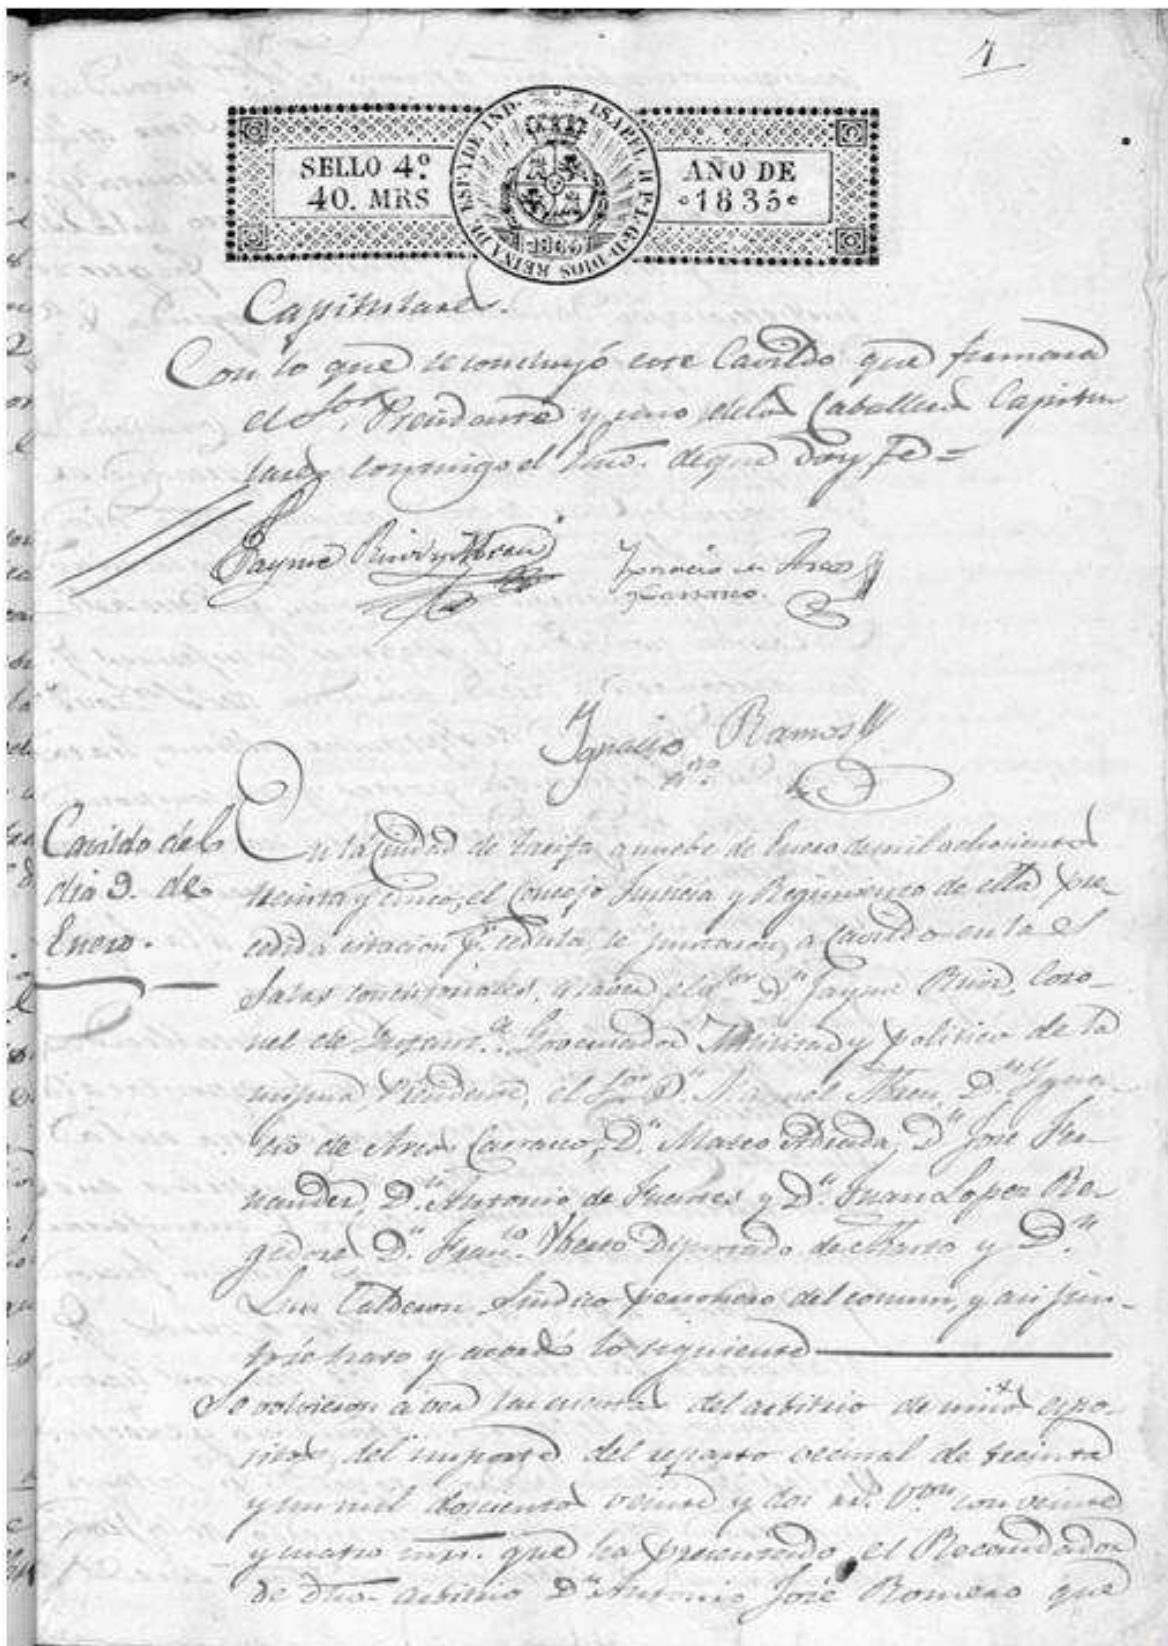 1
SELLO 4º
40. MRS
ISABEL II P. L. G. D. DIOS REINA DE ESP. Y DE IND.
AÑO DE
1835
Capitulares.
Con lo que se concluyó este Cavildo que firmará
el Sor. Presidente y uno delos Caballeros Capitu
lares conmigo el Esno. deque doy Fe =
Jayme Ruiz y Abreu
Ignacio de Arcos
y Carrasco.
Ignacio Ramos
Cavildo del
dia 9. de
Enero.
En la Ciudad de Tarifa a nuebe de Enero demil ochocientos
treinta y cinco, el Concejo Justicia y Regimiento de ella pre-
cedida citacion pr. cedula, se juntaron a Cavildo en las
Salas concistoriales, a saber, el Sor. Dn. Jayme Ruiz, Coro-
nel de Infanta. Governador Militar y politico de la
misma, Presidente, el Sor. Dn. Manuel Abreu, Dn. Igna-
cio de Arcos Carrasco, Dn. Mateo Dn. José Fer-
nandez, Dn. Antonio de Fuentes y Dn. Juan Lopez Re-
gidores Dn. Franco. Abreo Diputado de Abasto y Dn.
Luis Calderon Sindico personero del comun, y asi jun-
to trato y acordó lo siguiente
Se volvieron a ver las cuentas del arbitrio de niños espo-
sitos, del importe del reparto vecinal de treinta
y un mil doscientos veinte y dos rs. von. con veinte
y cuatro mrs. que ha presentado el Recaudador
de dho. arbitrio Dn. Antonio José Romero que